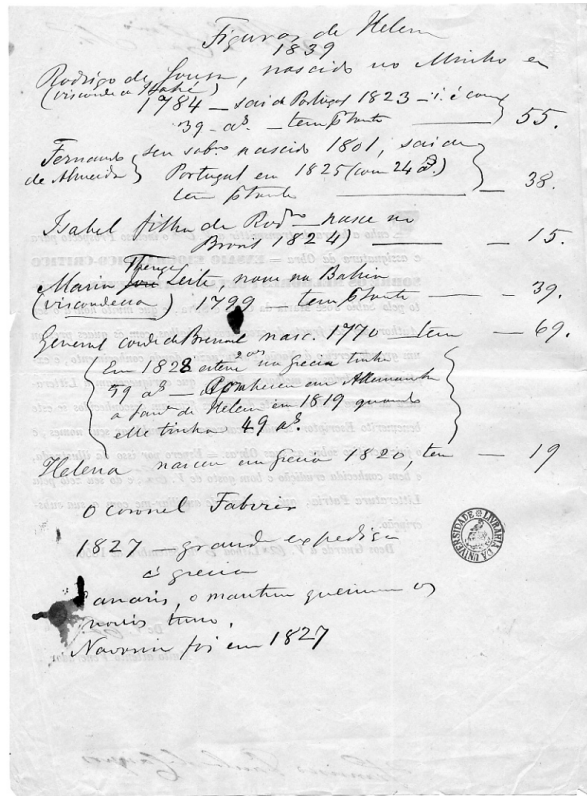 Figuras de Helena
1839
Rodrigo de Sousa, nascido no Minho em
(visconde de Itahé)
1784 — sai de Portugal 1823 — i. é com
39 aˢ. — tem pᵗᵃⁿᵗᵒ — 55.
Fernando } seu sobrº nascido 1801, sai de
de Almeida } Portugal em 1825 (com 24 aˢ.)
tem pᵗᵃⁿᵗᵒ — 38.
Isabel filha de Rodrº — nasce no
Brasil 1824) — 15.
Maria Thereza Leite nasce na Bahia
(viscondessa) 1799 — tem pᵗᵃⁿᵗᵒ — 39.
General conde de nasc. 1770 — tem — 69.
Em 1828 esteve na Grecia tinha
59 aˢ — Conheceu em Allemanha
a famª de Helena em 1819 quando
elle tinha 49 aˢ.
Helena nasceu em Grecia 1820, tem — 19
O coronel Fabvier
1827 — grande expedição
á grecia
Canaris, o
navios turcos.
Navarin foi em 1827
LIVRARIA DA UNIVERSIDADE